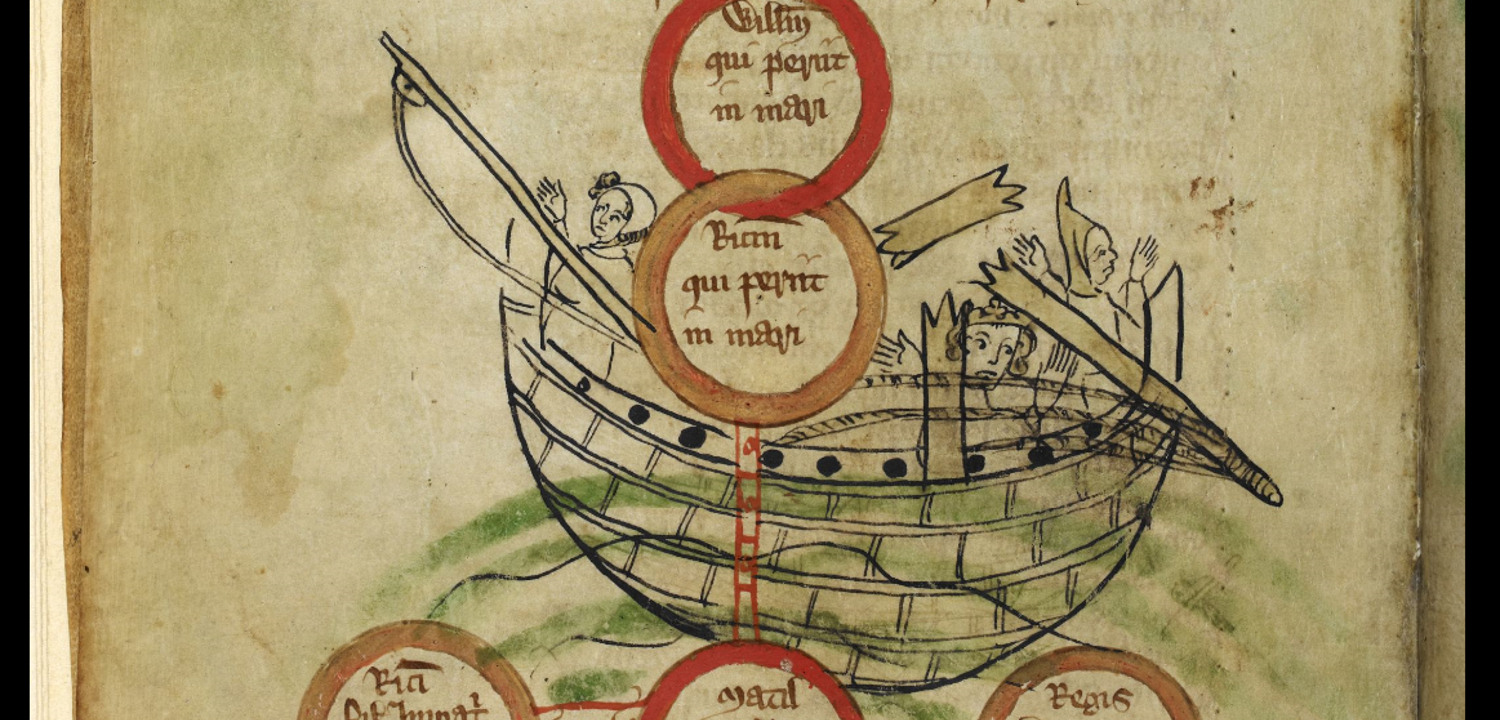 Willm
qui periit
in mari
Ricm
qui periit
in mari
Rici
Matil
Regis